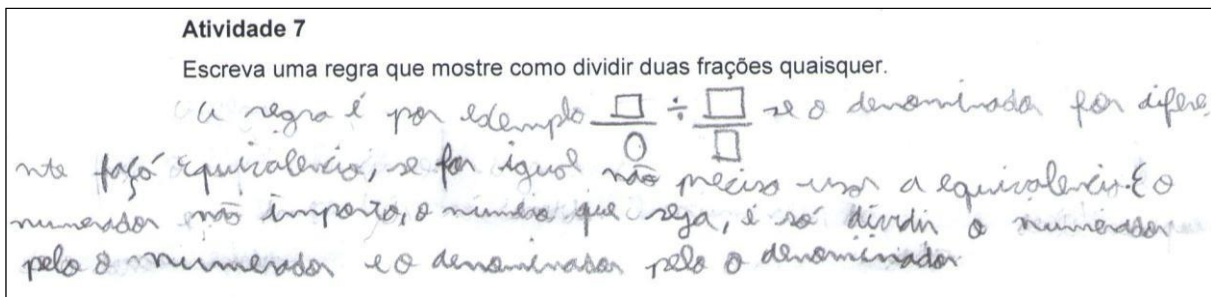 Atividade 7
Escreva uma regra que mostre como dividir duas frações quaisquer.
A regra é por exemplo □/○ ÷ □/□ se o denominador for difere
nte faço equivalencia, se for igual não preciso usar a equivalencia. E o
numerador não importa, o número que seja, é só dividir o numerador
pelo o numerador e o denominador pelo o denominador